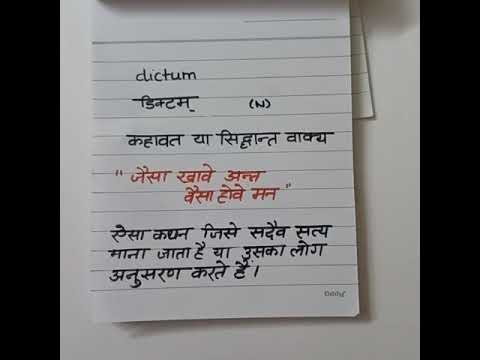 dictum
डिक्टम् (N)
कहावत या सिद्धान्त वाक्य
"जैसा खावे अन्न
वैसा होवे मन"
ऐसा कथन जिसे सदैव सत्य
माना जाता है या उसका लोग
अनुसरण करते हैं।